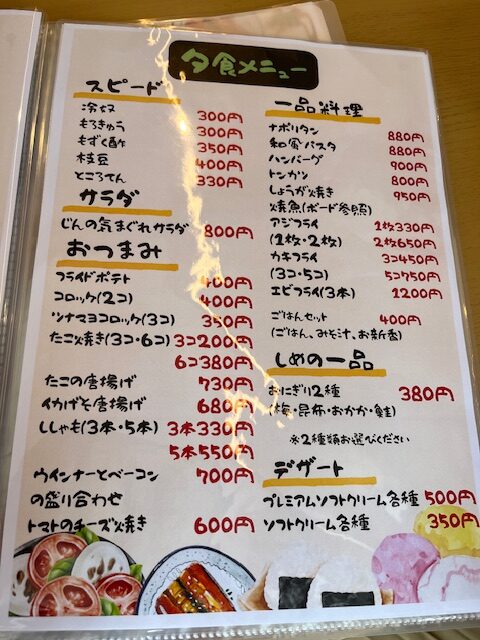 夕食メニュー
スピード
冷奴 300円
もろきゅう 300円
もずく酢 350円
枝豆 400円
ところてん 330円
サラダ
じんの気まぐれサラダ 800円
おつまみ
フライドポテト 400円
コロッケ(2コ) 400円
ツナマヨコロッケ(3コ) 350円
たこ焼き(3コ・6コ) 3コ200円
6コ380円
たこの唐揚げ 730円
イカげそ唐揚げ 680円
ししゃも(3本・5本) 3本330円
5本550円
ウインナーとベーコン 700円
の盛り合わせ
トマトのチーズ焼き 600円
一品料理
ナポリタン 880円
和風パスタ 880円
ハンバーグ 900円
トンカツ 800円
しょうが焼き 950円
焼魚(ボード参照)
アジフライ 1枚330円
(1枚・2枚) 2枚650円
カキフライ 3コ450円
(3コ・5コ) 5コ750円
エビフライ(3本) 1200円
ごはんセット 400円
(ごはん、みそ汁、お新香)
しめの一品
おにぎり2種 380円
(梅・昆布・おかか・鮭)
※2種類お選びください
デザート
プレミアムソフトクリーム各種 500円
ソフトクリーム各種 350円